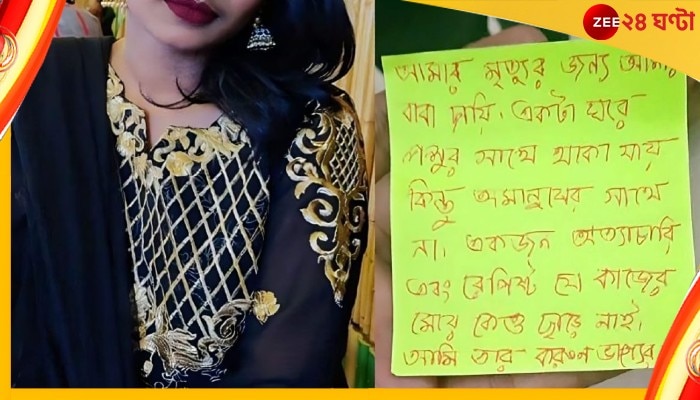 ZEE ২৪ ঘণ্টা
আমার মৃত্যুর জন্য আমার
বাবা দায়ি. একটা ঘরে
পশুর সাথে থাকা যায়
কিন্তু অমানুষের সাথে
না. একজন অত্যাচারি
এবং রেপিস্ট যে কাজের
মেয়ে কেও ছাড়ে নাই.
আমি তার করুণ ভাগ্যের